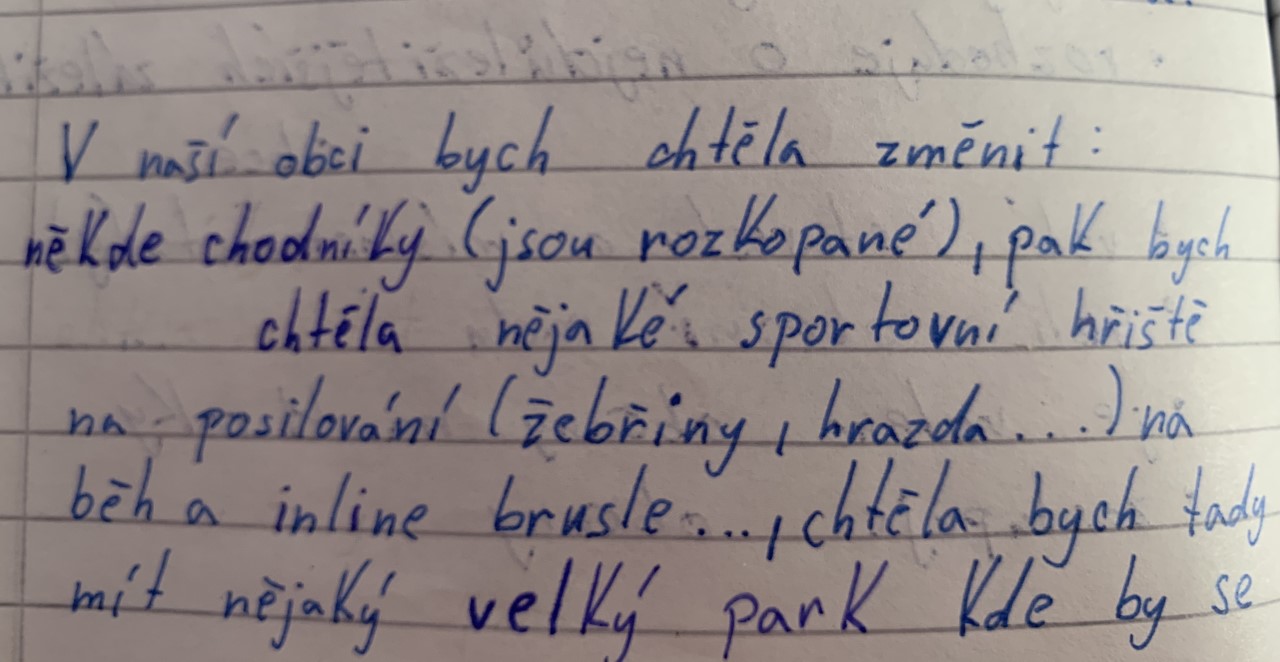 V naší obci bych chtěla změnit:
někde chodníky (jsou rozkopané), pak bych
chtěla nějaké sportovní hřiště
na posilování (žebřiny, hrazda....) na
běh a inline brusle..., chtěla bych tady
mít nějaký velký park kde by se